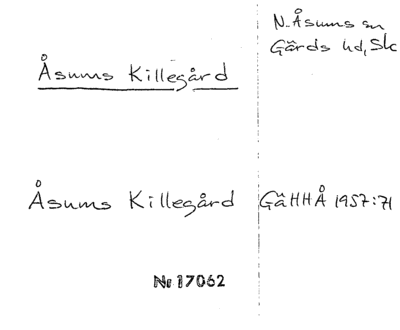 N. Åsums sn
Gärds hd, Sk
Åsums Killegård
Åsums Killegård GäHHÅ 1957:71
Nr 17062